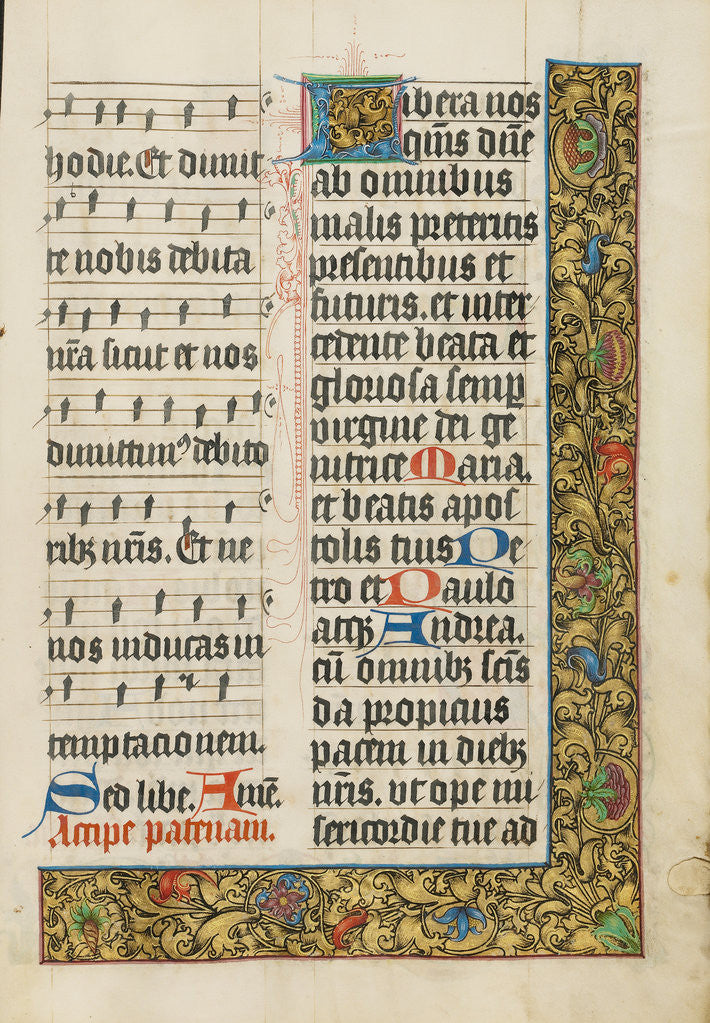 hodie. Et dimit
te nobis debita
nr̃a sicut et nos
dimittimꝰ debito
ribꝫ nr̃is. Et ne
nos inducas in
temptacionem.
Sed libe. Amẽ.
Accipe patenam.
Libera nos
qũs dñe
ab omnibus
malis preteritis
presentibus et
futuris. et inter
cedente beata et
gloriosa semꝑ
virgine dei ge
nitrice Maria.
et beatis apos
tolis tuis Pe
tro et Paulo
atqꝫ Andrea.
cũ omnibꝫ sc̃is
da propicius
pacem in diebꝫ
nr̃is. vt ope mi
sericordie tue ad